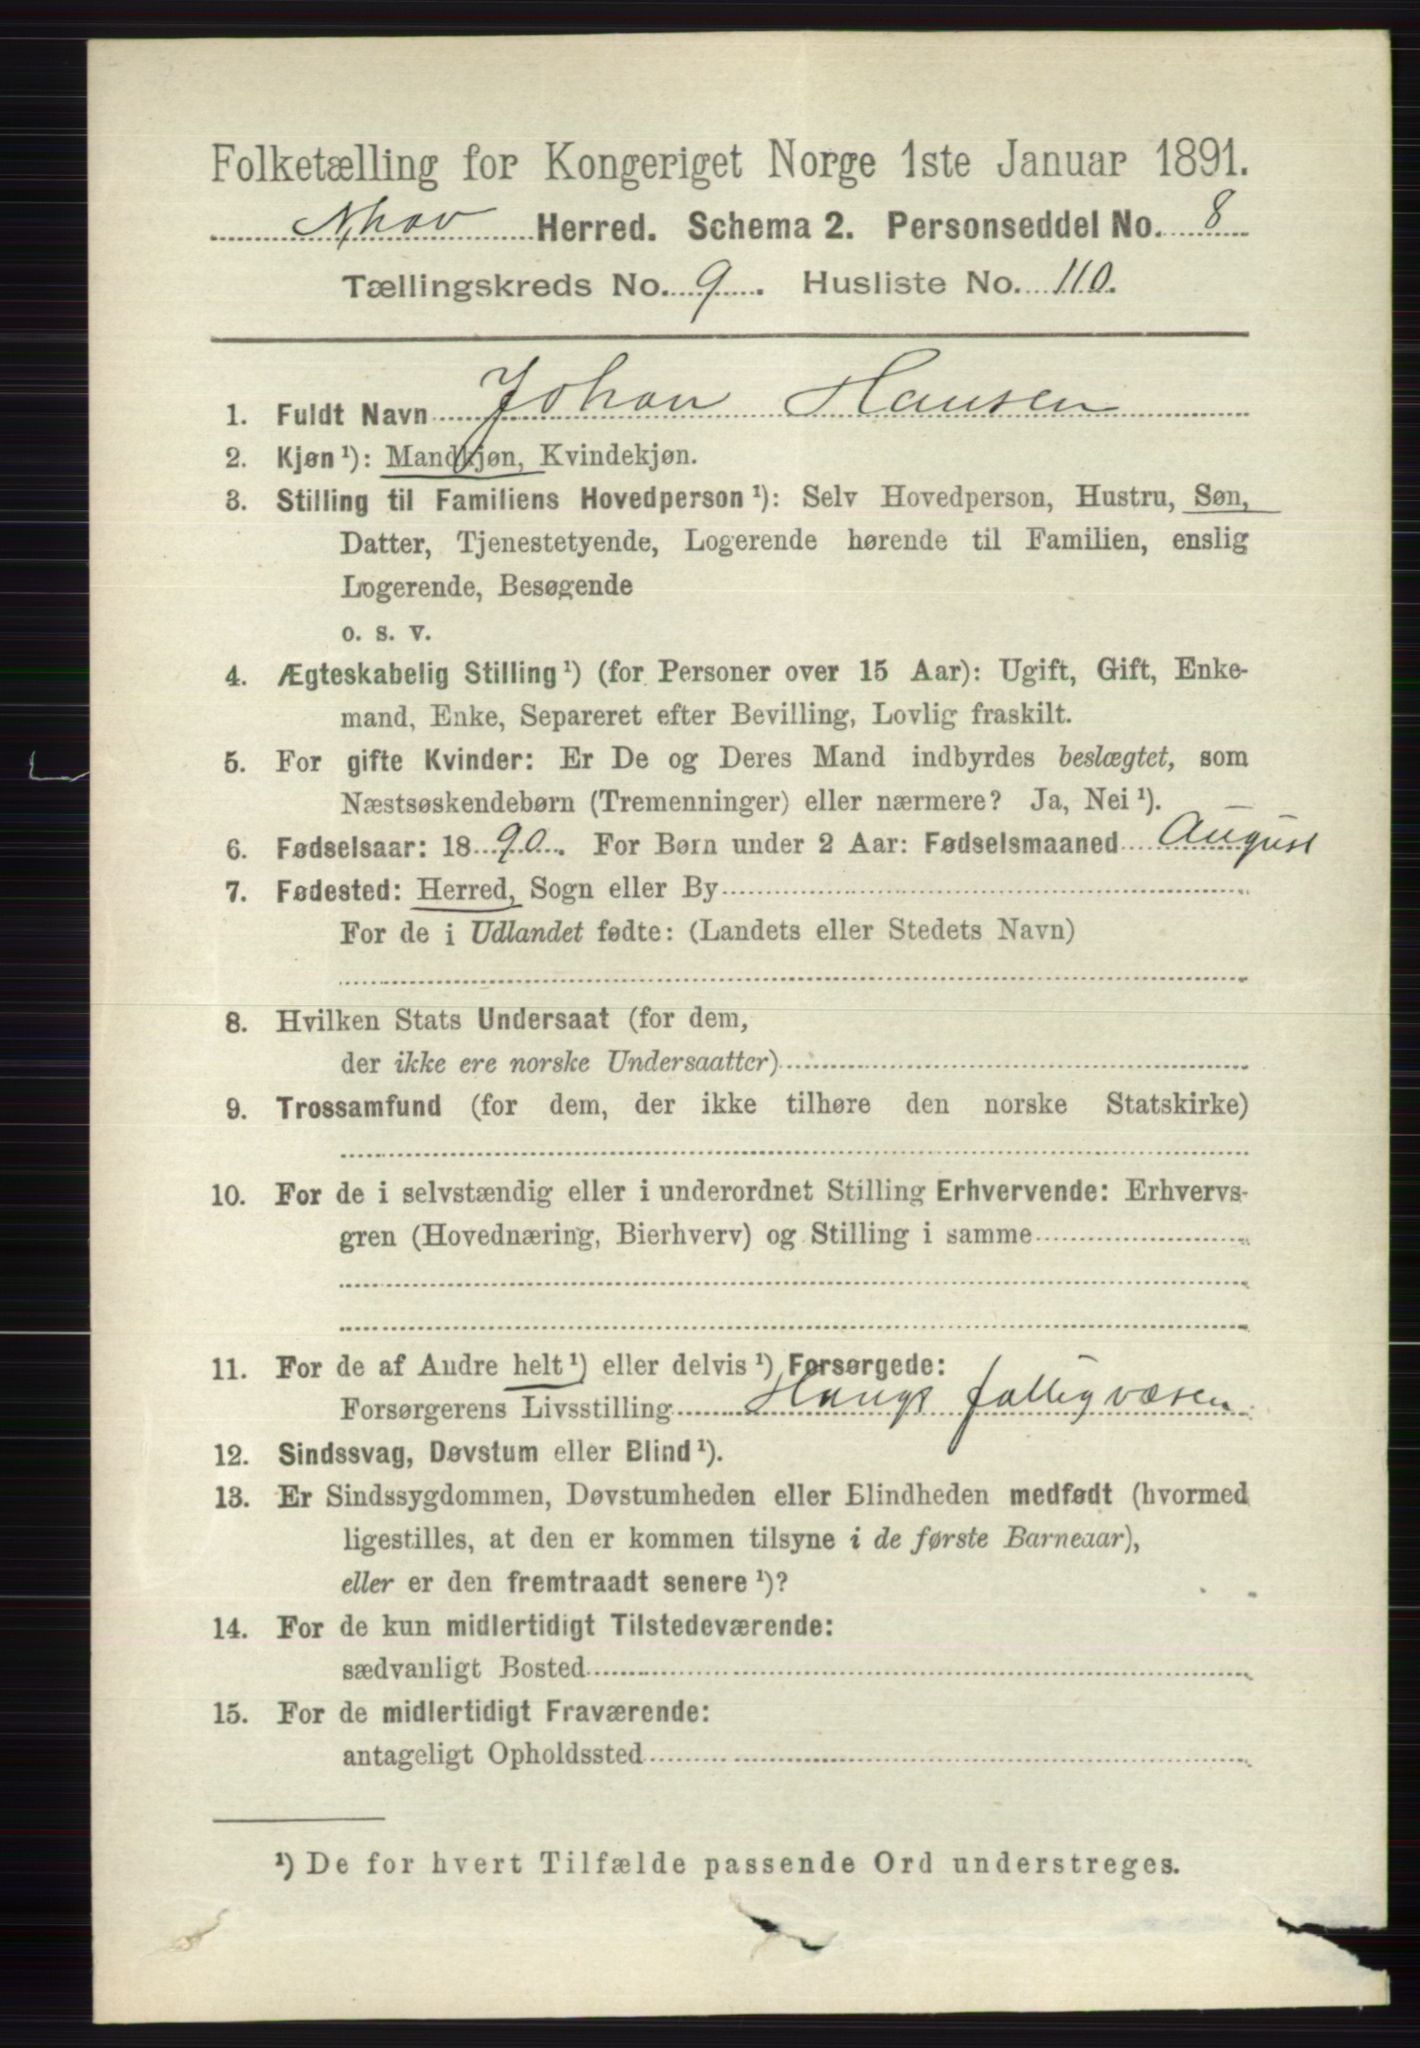 Folketælling for Kongeriget Norge 1ste Januar 1891.
Herred. Schema 2. Personseddel No. 8
Tællingskreds No. 9. Husliste No. 110.
1. Fuldt Navn Johan Hansen
2. Kjøn ¹): Mandkjøn, Kvindekjøn.
3. Stilling til Familiens Hovedperson ¹): Selv Hovedperson, Hustru, Søn,
Datter, Tjenestetyende, Logerende hørende til Familien, enslig
Logerende, Besøgende
o. s. v.
4. Ægteskabelig Stilling ¹) (for Personer over 15 Aar): Ugift, Gift, Enke-
mand, Enke, Separeret efter Bevilling, Lovlig fraskilt.
5. For gifte Kvinder: Er De og Deres Mand indbyrdes beslægtet, som
Næstsøskendebørn (Tremenninger) eller nærmere? Ja, Nei ¹).
6. Fødselsaar: 1890. For Børn under 2 Aar: Fødselsmaaned August
7. Fødested: Herred, Sogn eller By
For de i Udlandet fødte: (Landets eller Stedets Navn)
8. Hvilken Stats Undersaat (for dem,
der ikke ere norske Undersaatter)
9. Trossamfund (for dem, der ikke tilhøre den norske Statskirke)
10. For de i selvstændig eller i underordnet Stilling Erhvervende: Erhvervs-
gren (Hovednæring, Bierhverv) og Stilling i samme
11. For de af Andre helt ¹) eller delvis ¹) Forsørgede:
Forsørgerens Livsstilling fattigvæsen
12. Sindssvag, Døvstum eller Blind ¹).
13. Er Sindssygdommen, Døvstumheden eller Blindheden medfødt (hvormed
ligestilles, at den er kommen tilsyne i de første Barneaar),
eller er den fremtraadt senere ¹)?
14. For de kun midlertidigt Tilstedeværende:
sædvanligt Bosted
15. For de midlertidigt Fraværende:
antageligt Opholdssted
¹) De for hvert Tilfælde passende Ord understreges.